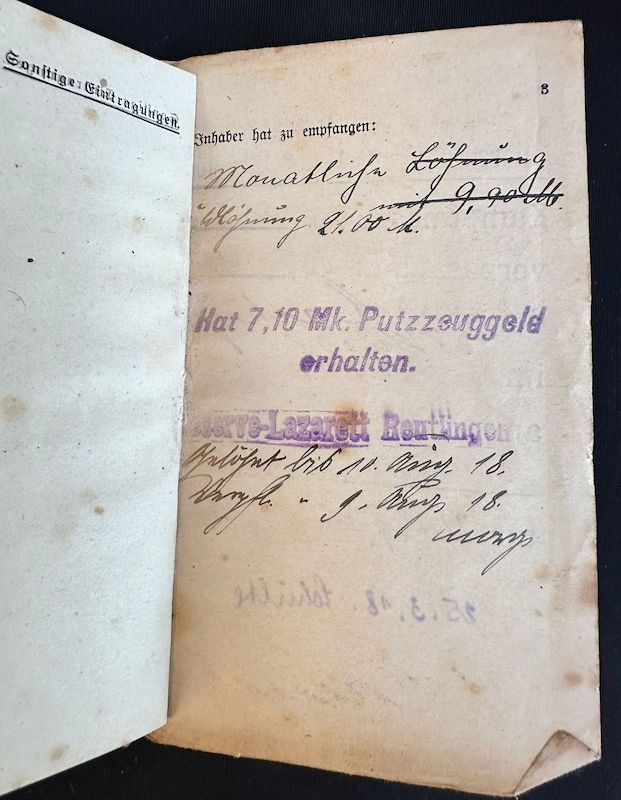 Sonstige Eintragungen.
3
Inhaber hat zu empfangen:
Monatliche Löhnung
mit 9,90 M.
ldlöhnung 21.00 M.
Hat 7,10 Mk. Putzzeuggeld
erhalten.
serve-Lazarett Reutlingen
Gelöhnt bis 10. Aug. 18.
Verpfl. " 9. Aug. 18.
morgs
25.3.18.